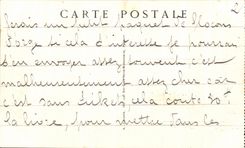 CARTE POSTALE
2
Ferais un petit paquet de flocons
d'orge si cela t'interesse je pourrai
t'en envoyer assez souvent c'est
malheureusement assez cher car
c'est sans tickets, cela coute 30f
la livre, pour mettre dans les